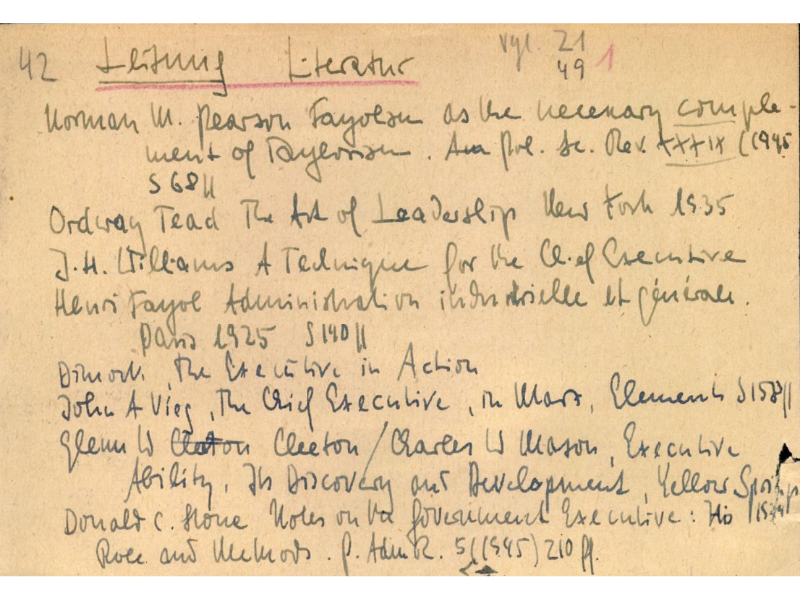 42 Leitung Literatur vgl. 21 1
49
Norman M. Pearson Fayolism as the necessary comple-
ment of Taylorism. Am Pol. Sc. Rev. XXXIX (1945
S 68ff
Ordway Tead The Art of Leadership New York 1935
J. H. Williams A Technique for the Chief Executive
Henri Fayol Administration industrielle et générale.
Paris 1925 S 140ff
Dimock, The Executive in Action
John A Vieg, The Chief Executive, in Marx, Elements S 158ff
Glenn W Cleeton / Charles W Mason, Executive
Ability, Its Discovery and Development, Yellow Springs
Donald C. Stone Notes on the Government Executive: His
Role and Methods. P. Adm R. 5 (1945) 210 ff.